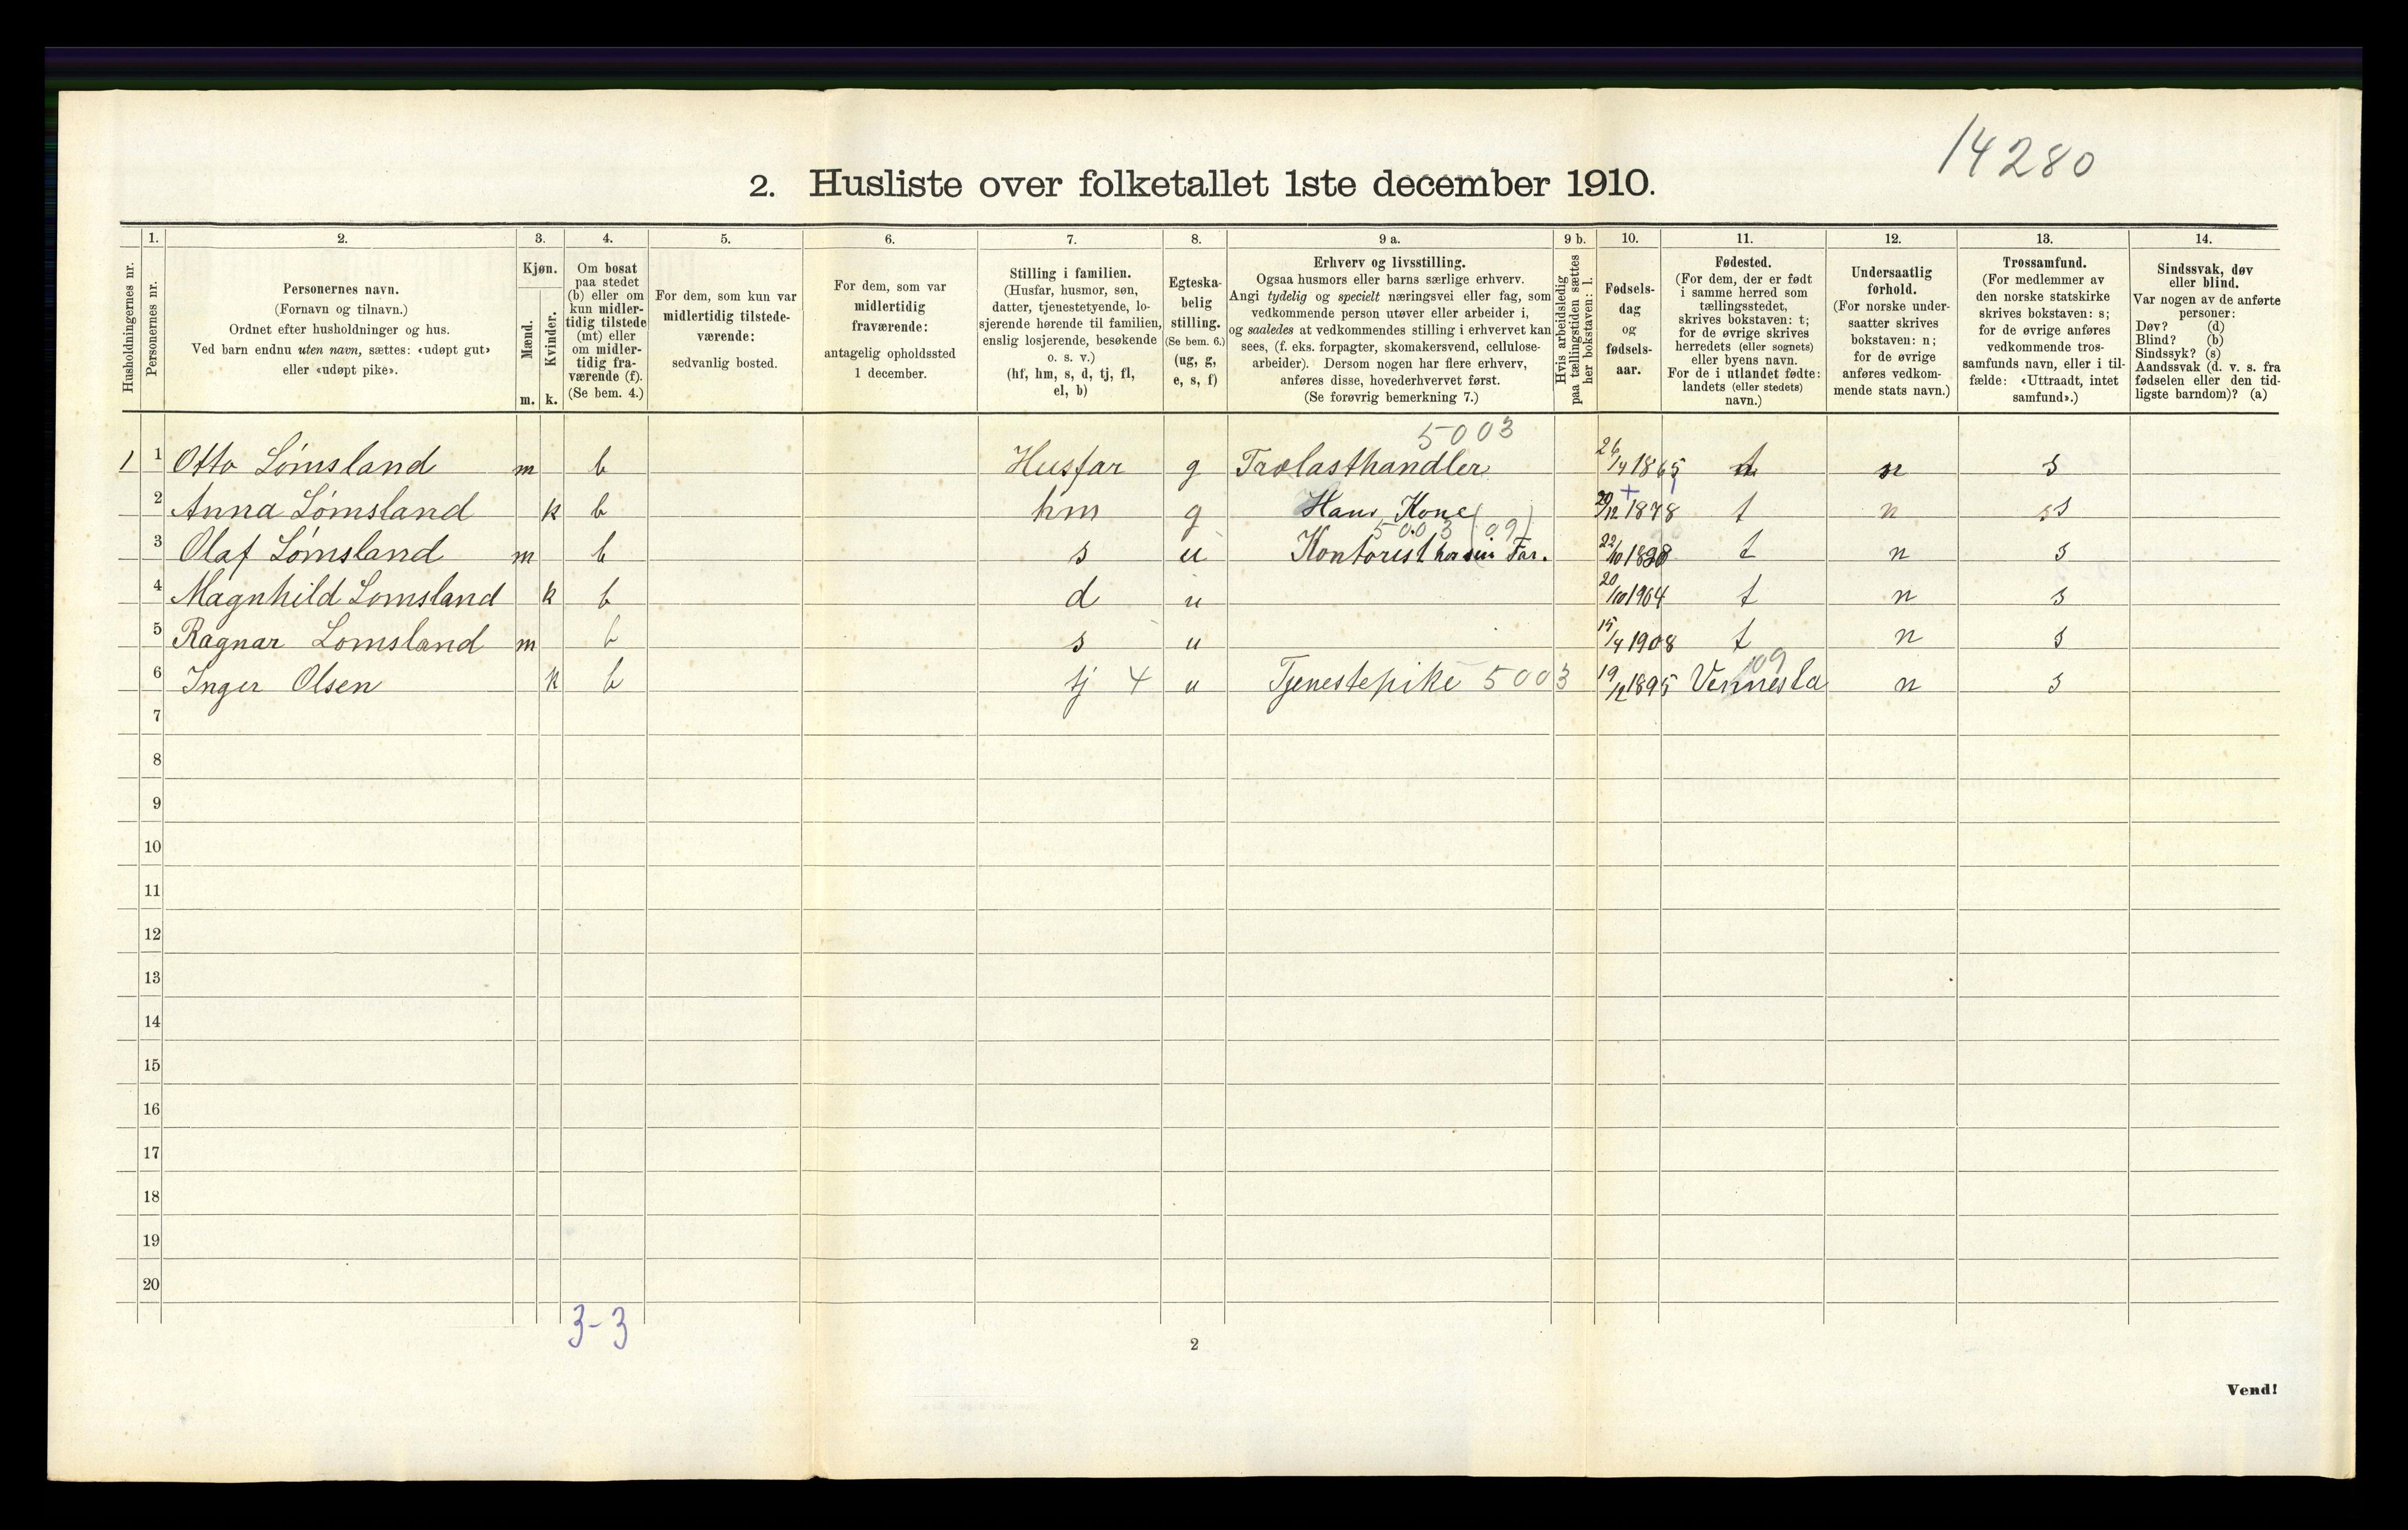 14280
2. Husliste over folketallet 1ste december 1910.
Husholdningernes nr.
1.
Personernes nr.
2.
Personernes navn.
(Fornavn og tilnavn.)
Ordnet efter husholdninger og hus.
Ved barn endnu uten navn, sættes: «udøpt gut»
eller «udøpt pike».
3.
Kjøn.
Mænd.
Kvinder.
m. k.
4.
Om bosat
paa stedet
(b) eller om
kun midler-
tidig tilstede
(mt) eller
om midler-
tidig fra-
værende (f).
(Se bem. 4.)
5.
For dem, som kun var
midlertidig tilstede-
værende:
sedvanlig bosted.
6.
For dem, som var
midlertidig
fraværende:
antagelig opholdssted
1 december.
7.
Stilling i familien.
(Husfar, husmor, søn,
datter, tjenestetyende, lo-
sjerende hørende til familien,
enslig losjerende, besøkende
o. s. v.)
(hf, hm, s, d, tj, fl,
el, b)
8.
Egteska-
belig
stilling.
(Se bem. 6.)
(ug, g,
e, s, f)
9 a.
Erhverv og livsstilling.
Ogsaa husmors eller barns særlige erhverv.
Angi tydelig og specielt næringsvei eller fag, som
vedkommende person utøver eller arbeider i,
og saaledes at vedkommendes stilling i erhvervet kan
sees, (f. eks. forpagter, skomakersvend, cellulose-
arbeider). Dersom nogen har flere erhverv,
anføres disse, hovederhvervet først.
(Se forøvrig bemerkning 7.)
9 b.
Hvis arbeidsledig
paa tællingstiden sættes
her bokstaven: l.
10.
Fødsels-
dag
og
fødsels-
aar.
11.
Fødested.
(For dem, der er født
i samme herred som
tællingsstedet,
skrives bokstaven: t;
for de øvrige skrives
herredets (eller sognets)
eller byens navn.
For de i utlandet fødte:
landets (eller stedets)
navn.)
12.
Undersaatlig
forhold.
(For norske under-
saatter skrives
bokstaven: n;
for de øvrige
anføres vedkom-
mende stats navn.)
13.
Trossamfund.
(For medlemmer av
den norske statskirke
skrives bokstaven: s;
for de øvrige anføres
vedkommende tros-
samfunds navn, eller i til-
fælde: «Uttraadt, intet
samfund».)
14.
Sindssvak, døv
eller blind.
Var nogen av de anførte
personer:
Døv? (d)
Blind? (b)
Sindssyk? (s)
Aandssvak (d. v. s. fra
fødselen eller den tid-
ligste barndom)? (a)
5003
1 1 Otto Lømsland m b Husfar g Trælasthandler 26/4 1865 t n s
2 Anna Lømsland k b hm g Hans Kone 1878 t n s
5003 (09)
3 Olaf Lømsland m b s u Kontorist hos sin Far. 22/10 t n s
4 Magnhild Lomsland k b d u 20/10 1904 t n s
5 Ragnar Lomsland m b s u 15/4 1908 t n s
109
6 Inger Olsen k b tj 4 u Tjenestepike 5003 19/12 1895 Vennesla n s
7
8
9
10
11
12
13
14
15
16
17
18
19
20
3-3
2
Vend!